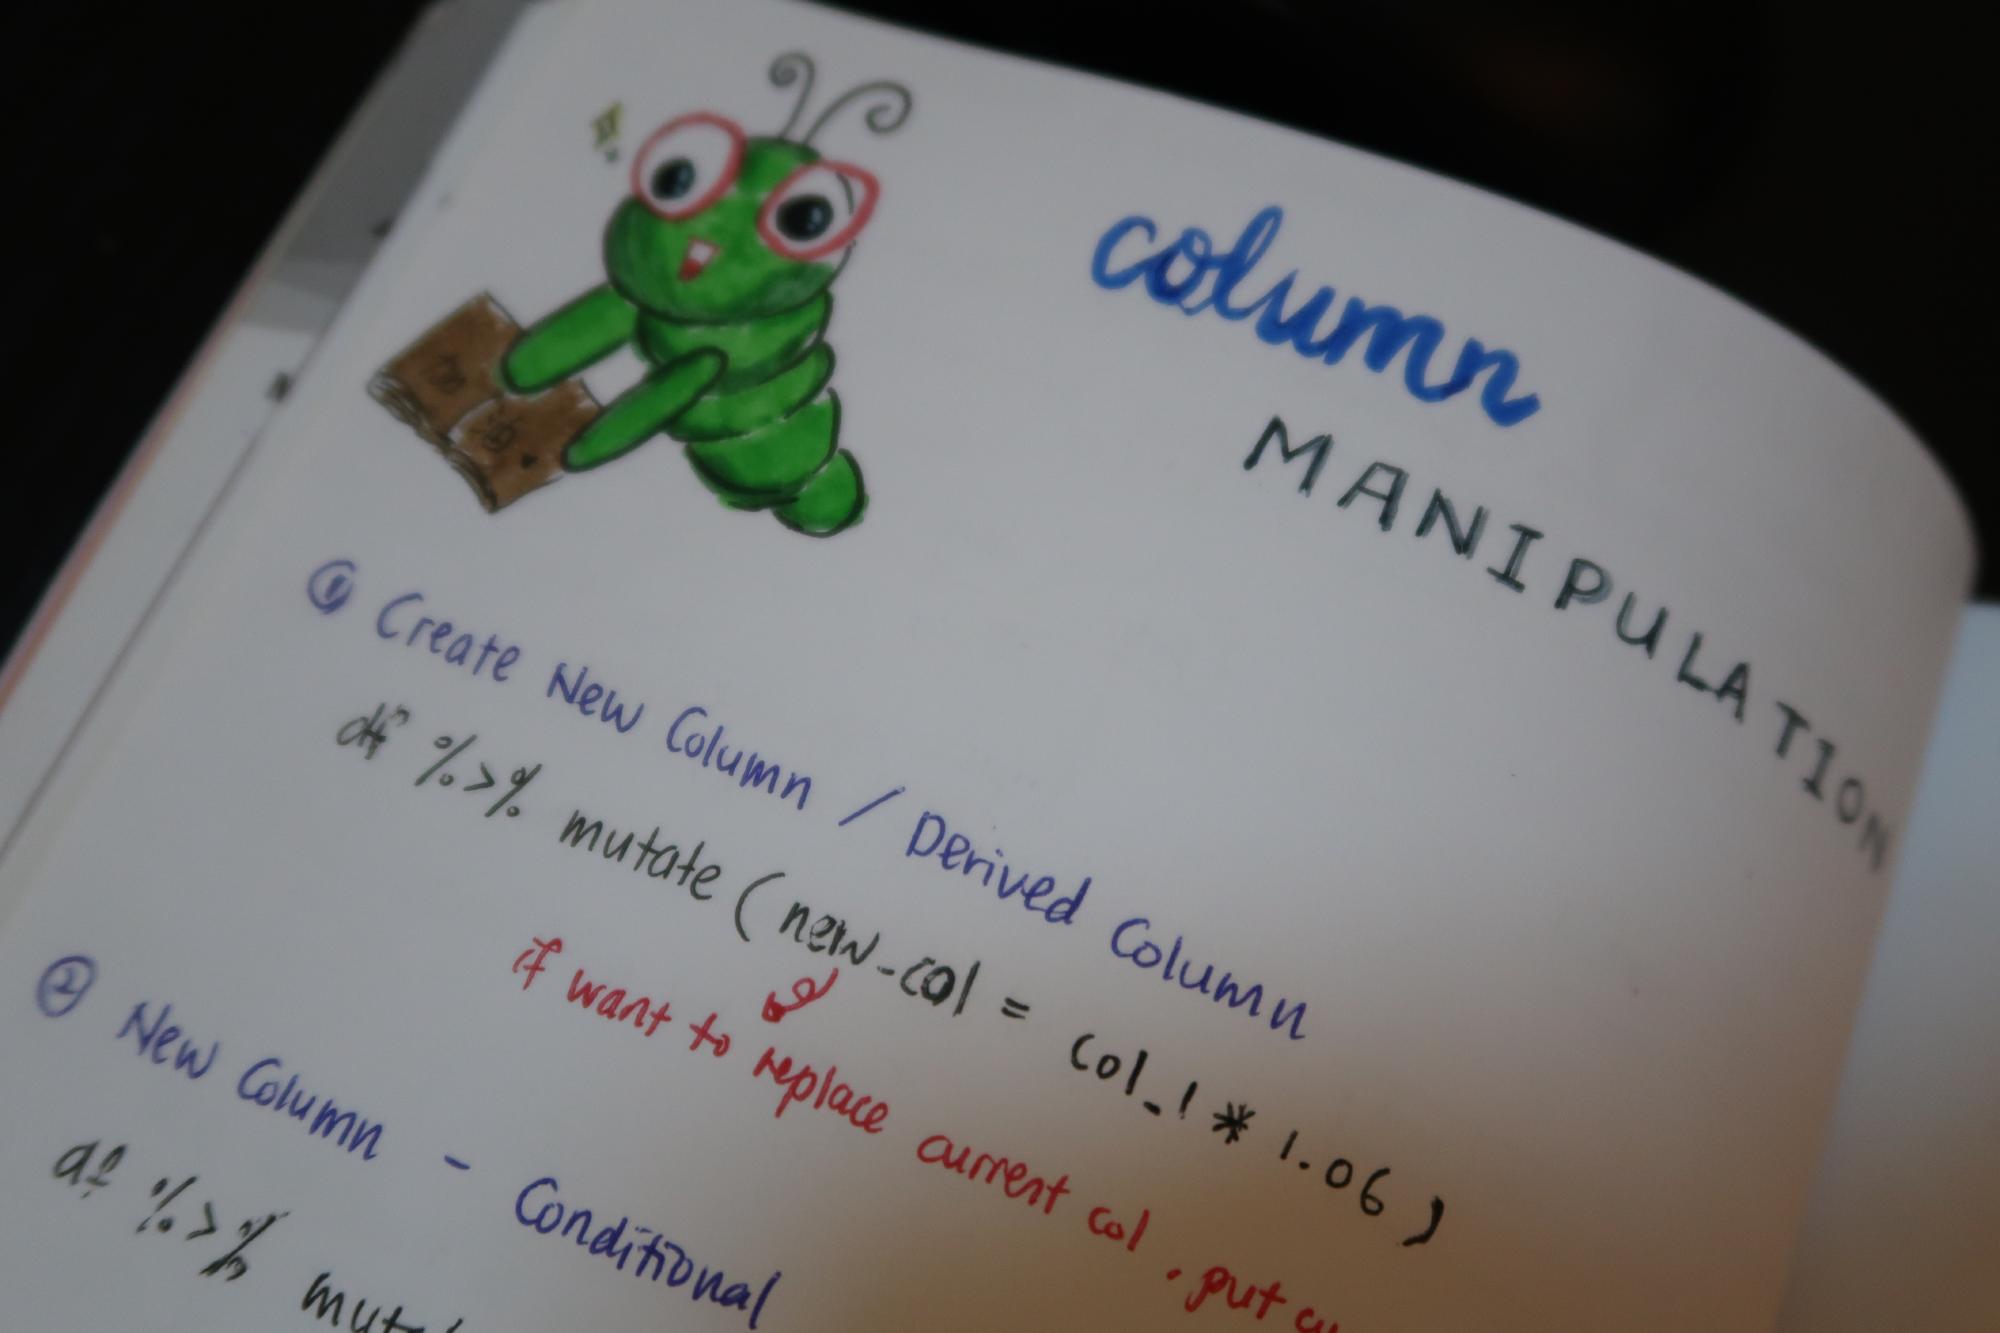 column
MANIPULATION
① Create New Column / Derived Column
df %>% mutate (new_col = col_1 * 1.06)
if want to replace current col. put
② New Column - Conditional
df %>%